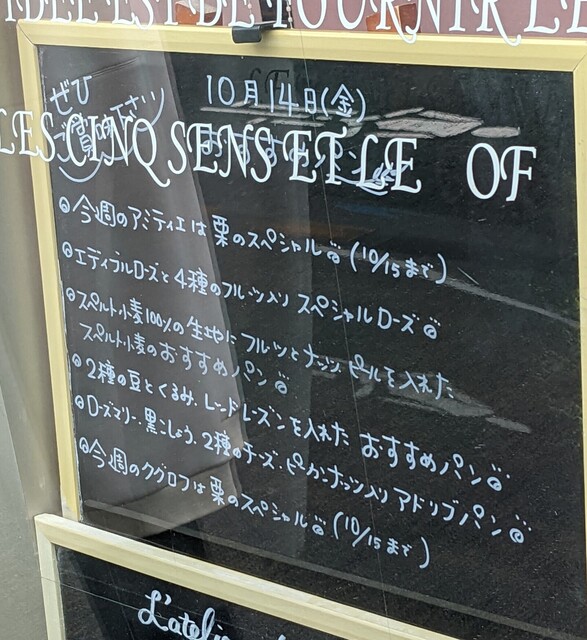 IDEE EST DE FOURNIR LE
ぜひ
ご賞味下さい
10月14日(金)
おすすめパン
LES CINQ SENS ET LE OF
今週のアミティエは栗のスペシャル (10/15まで)
エディブルローズと4種のフルーツ入り スペシャルローズ
スペルト小麦100%の生地にフルーツとナッツ ピールを入れた
スペルト小麦のおすすめパン
2種の豆とくるみ、レッドレーズンを入れた おすすめパン
ローズマリー・黒こしょう、2種のチーズ・ピカンナッツ入り アドリブパン
今週のクグロフは栗のスペシャル (10/15まで)
L'atelier